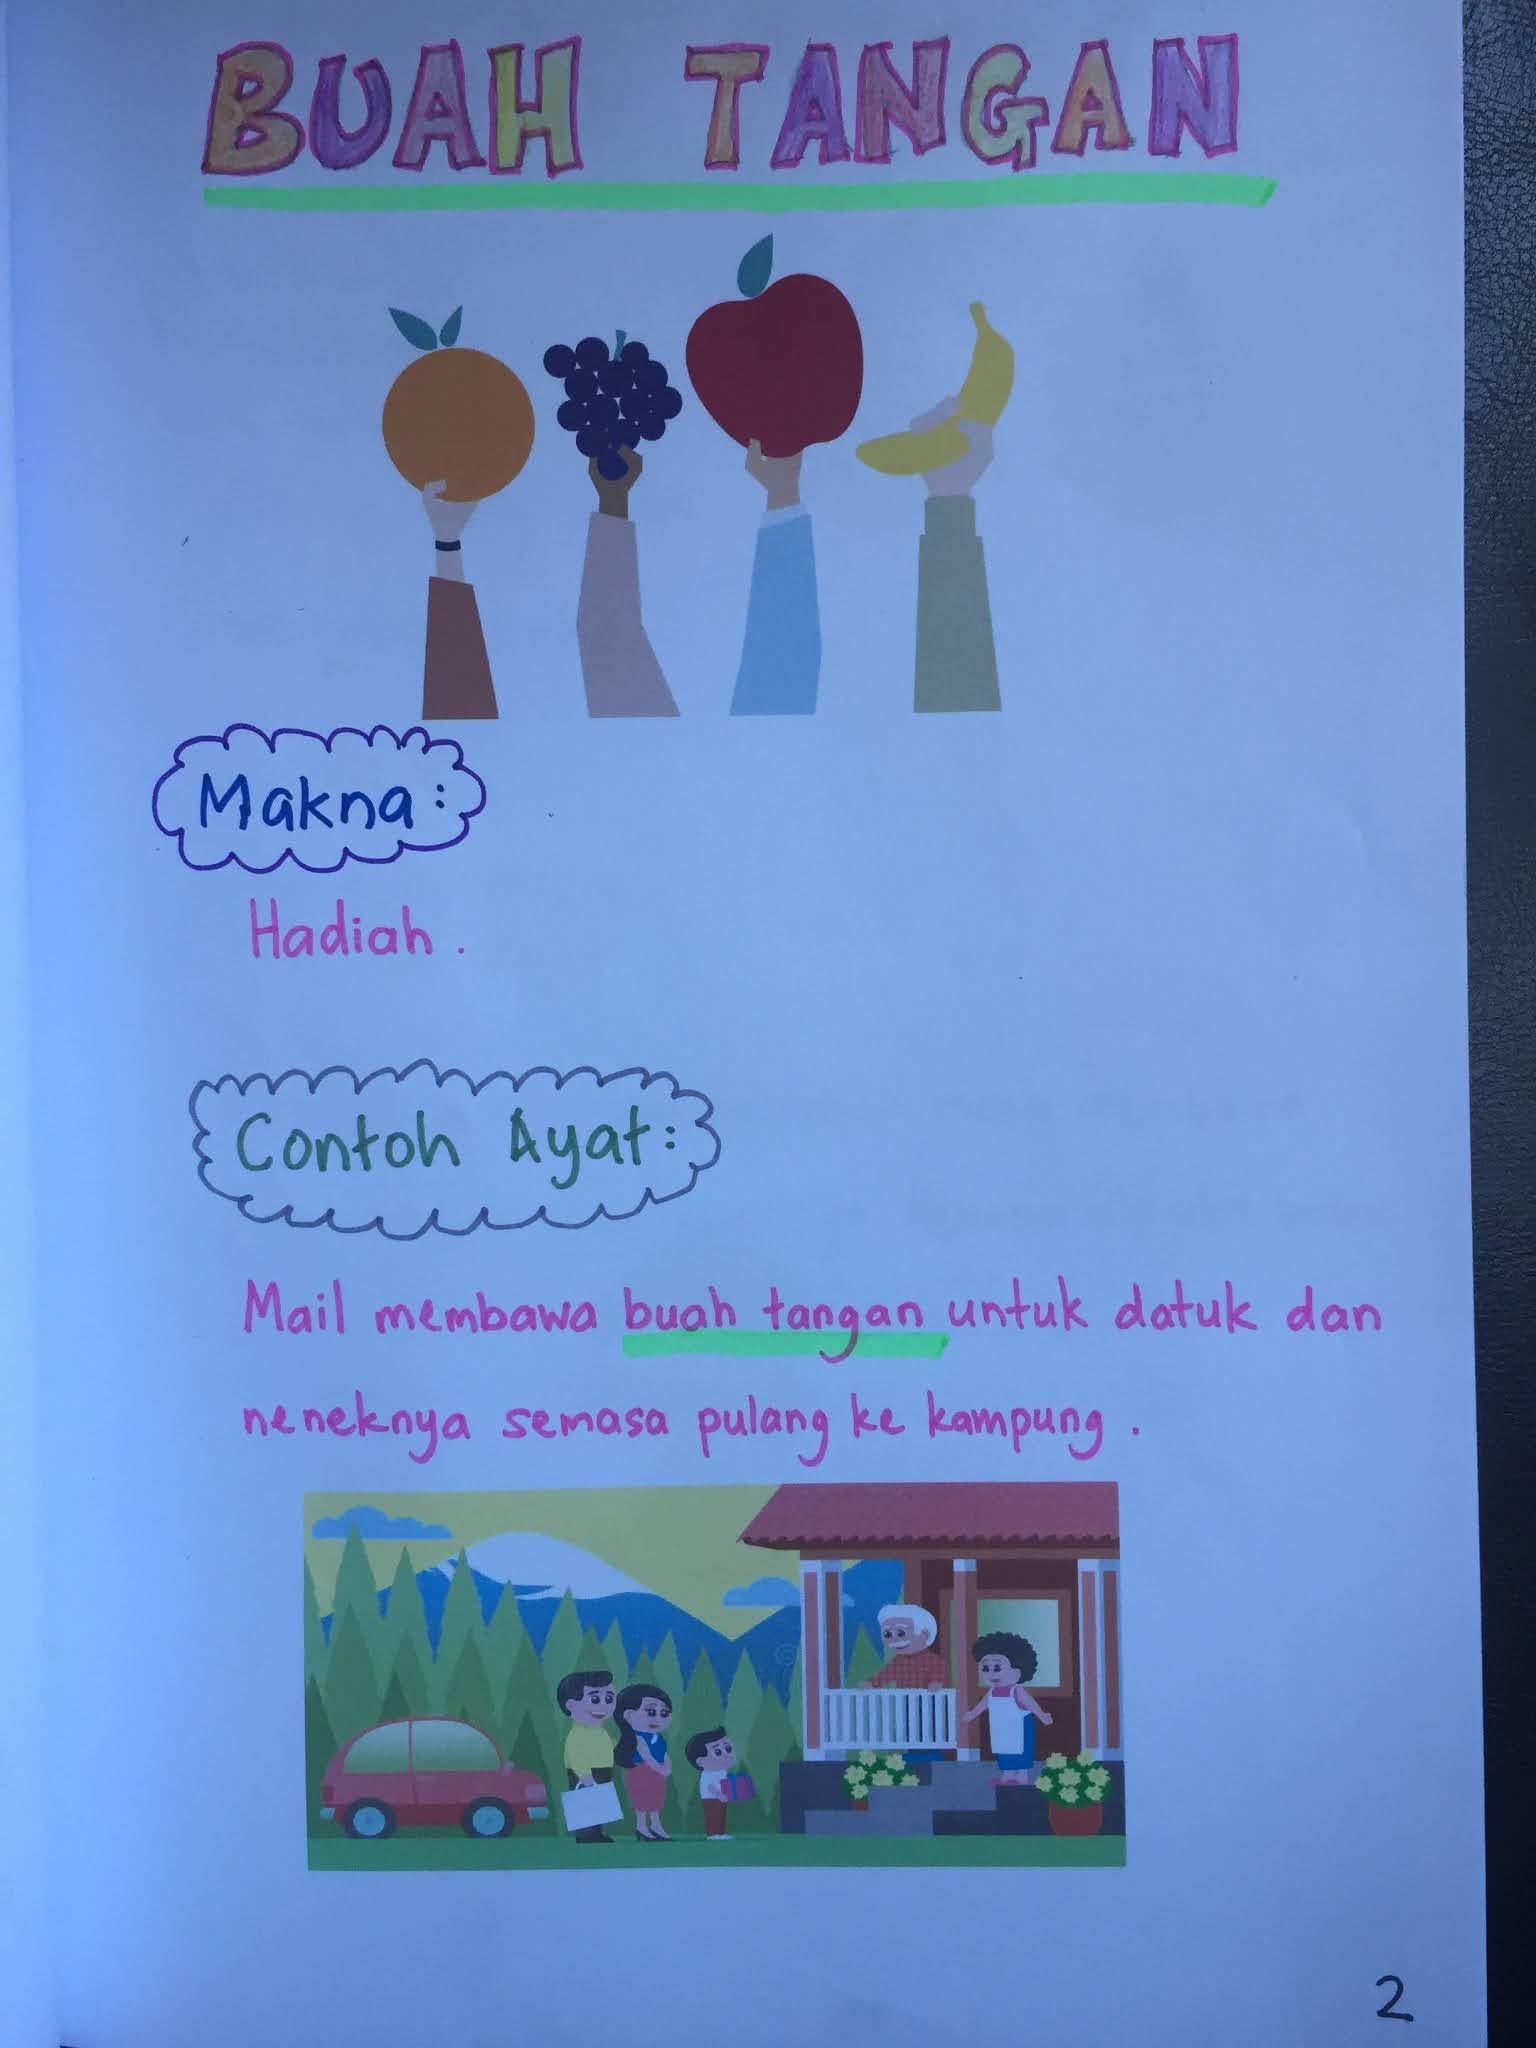 BUAH TANGAN
Makna:
Hadiah.
Contoh Ayat:
Mail membawa buah tangan untuk datuk dan
neneknya semasa pulang ke kampung.
2